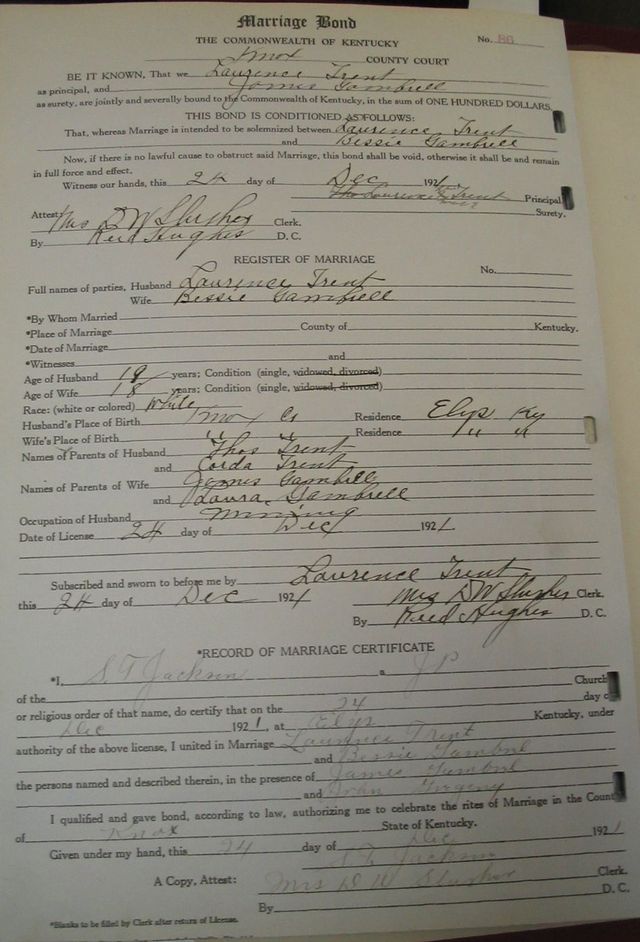 Marriage Bond
THE COMMONWEALTH OF KENTUCKY No. 86
Knox COUNTY COURT
BE IT KNOWN, That we Laurence Trent
as principal, and James Gambrell
as surety, are jointly and severally bound to the Commonwealth of Kentucky, in the sum of ONE HUNDRED DOLLARS.
THIS BOND IS CONDITIONED AS FOLLOWS:
That, whereas Marriage is intended to be solemnized between Laurence Trent
and Bessie Gambrell
Now, if there is no lawful cause to obstruct said Marriage, this bond shall be void, otherwise it shall be and remain
in full force and effect.
Witness our hands, this 24 day of Dec 192
Laurence Trent Principal
Surety.
Attest: Mrs D W Slusher Clerk.
By Reid Hughes D. C.
REGISTER OF MARRIAGE
No.
Full names of parties, Husband Laurence Trent
Wife Bessie Gambrell
*By Whom Married
*Place of Marriage County of Kentucky.
*Date of Marriage
*Witnesses and
Age of Husband 19 years; Condition (single, widowed, divorced)
Age of Wife 18 years; Condition (single, widowed, divorced)
Race: (white or colored) White
Husband's Place of Birth Knox Co Residence Elys Ky
Wife's Place of Birth " " Residence " "
Names of Parents of Husband Thos Trent
and Corda Trent
Names of Parents of Wife James Gambrell
and Laura Gambrell
Occupation of Husband Mining
Date of License 24 day of Dec 1921.
Subscribed and sworn to before me by Lawrence Trent
this 24 day of Dec 1921 Mrs D W Slusher Clerk.
By Reid Hughes D. C.
*RECORD OF MARRIAGE CERTIFICATE
*I, S. T. Jackson a J P
of the Church
or religious order of that name, do certify that on the 24 day o
Dec 1921, at Elys Kentucky, under
authority of the above license, I united in Marriage Laurence Trent
and Bessie Gambrel
the persons named and described therein, in the presence of James Gambrel
and John
I qualified and gave bond, according to law, authorizing me to celebrate the rites of Marriage in the Count
of Knox State of Kentucky.
Given under my hand, this 24 day of Dec 1921
S. T. Jackson
A Copy, Attest: Mrs D W Slusher Clerk.
By D. C.
*Blanks to be filled by Clerk after return of License.